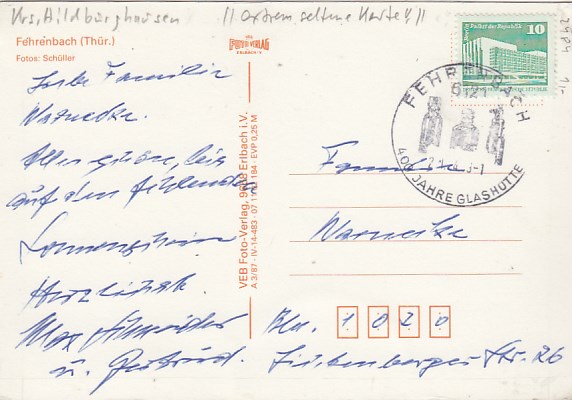 Krs. Hildburghausen !! extrem seltene Karte !!
Fehrenbach (Thür.)
Fotos: Schüller
FOTO-VERLAG
ERLBACH/V
Liebe Familie
Warnecke.
Alles schöne, bis
auf den fehlenden
Sonnenschein
Herzlichst
Max Schneider
u. Gertrud.
VEB Foto-Verlag, 9655 Erlbach i.V.
A 3/87 · IV-14-483 · 07 11 03 184 · EVP 0,25 M
Palast der Republik
10
FEHRENBACH
6121
400 JAHRE GLASHÜTTE
Familie
Warnecke
Bln. 1 0 2 0
Str. 26